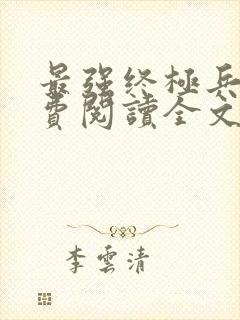 最强终極兵
費閱讀全文
李雲清